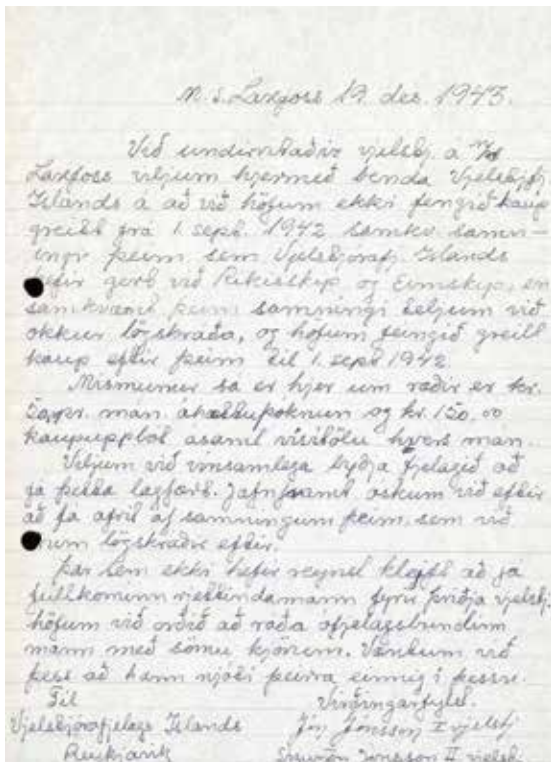 M.s. Laxfoss 19. des. 1943.
Við undirritaðir vjelstj. á m/s
Laxfoss viljum hjermeð benda Vjelstj.fj.
Íslands á að við höfum ekki fengið kaup
greitt frá 1. sept. 1942 samkv. samn-
ingi þeim sem Vjelstjórafj. Íslands
hefir gert við Ríkisskip og Eimskip, en
samkvæmt þeim samningi teljum við
okkur lögskráða, og höfum feingið greitt
kaup eftir þeim til 1. sept 1942.
Mismunur sá er hjer um ræðir er kr.
pr. mán. áhættuþóknun og kr. 150.00
kaupuppbót ásamt vísitölu hvers mán.
Viljum við vinsamlega byðja fjelagið að
fá þetta lagfært. Jafnframt óskum við eftir
að fá afrit af samningum þeim sem við
erum lögskráðir eftir.
Þar sem ekki hefir reynst kleyft að fá
fullkominn rjettindamann fyrir þriðja vjelstj.
höfum við orðið að ráða ófjelagsbundinn
mann með sömu kjörum. Væntum við
þess að hann njóti þeirra einnig í þessu.
Til
Virðingarfylst.
Vjelstjórafjelags Íslands
Jón Jónsson I vjelstj
Reykjavík
Jónsson II vjelstj.